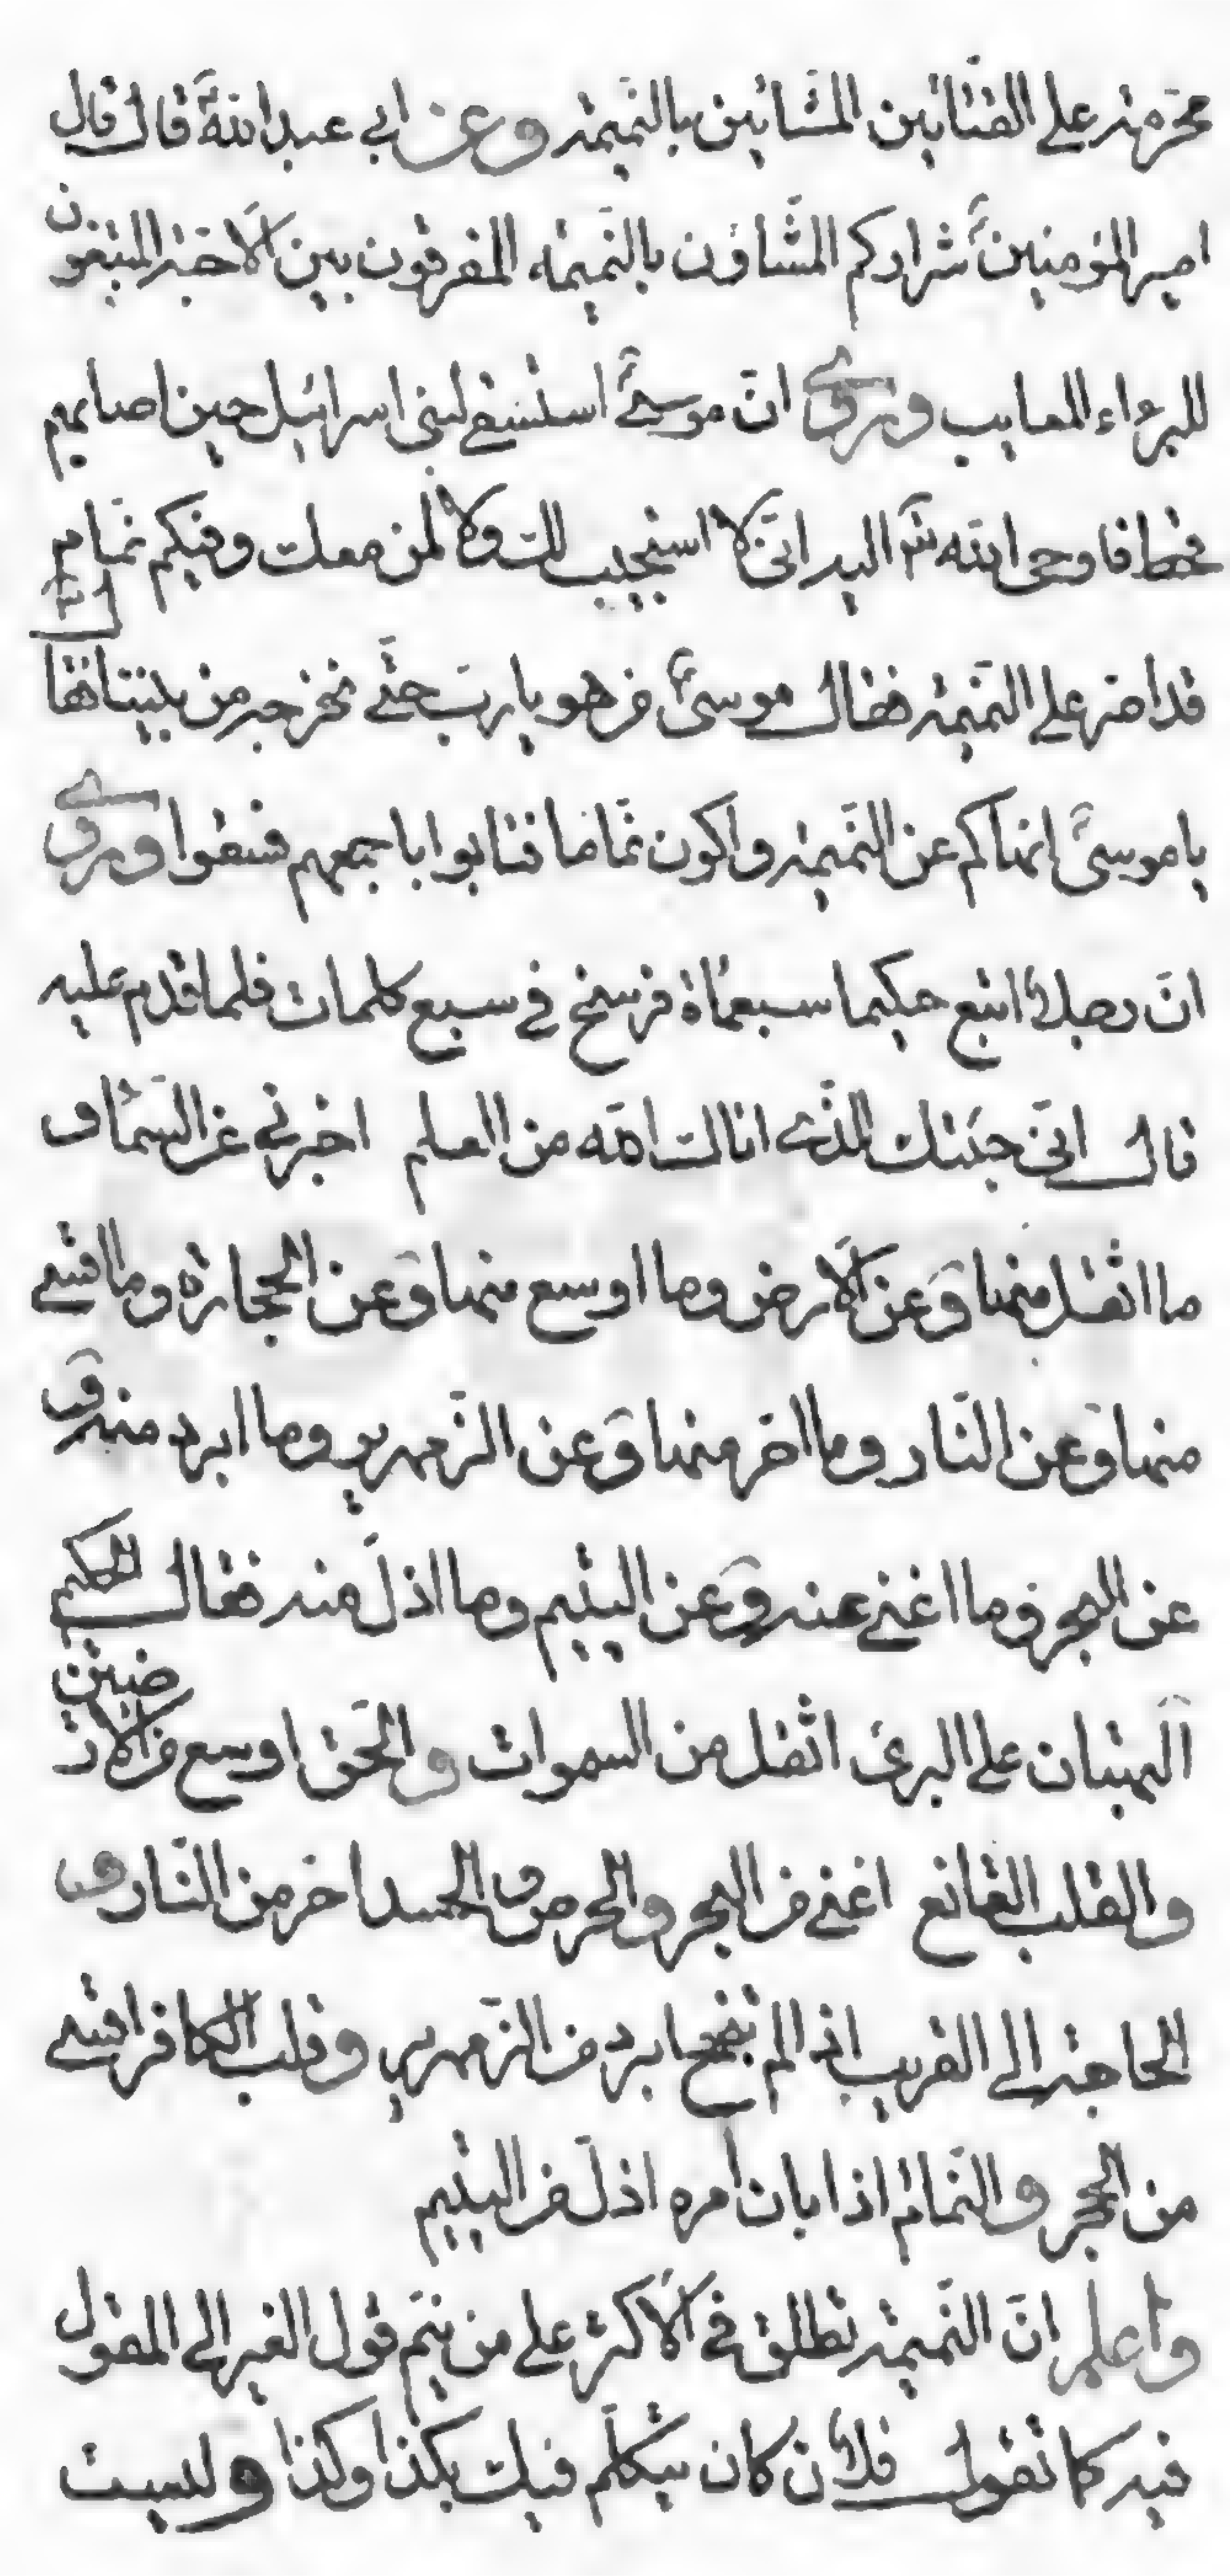 محرمة على القتاتين المشائين بالنميمة وعن ابي عبد الله قال قال
امير المؤمنين شراركم المشاؤن بالنميمة المفرقون بين الاحبة المبتغون
للبرءاء المعايب وروى ان موسى استسقى لبنى اسرائيل حين اصابهم
قحط فاوحى الله تع اليه انى لا استجيب لك ولا لمن معك وفيكم نمام
قد اصر على النميمة فقال موسى من هو يا رب حتى نخرجه من بيننا فقا
يا موسى انهاكم عن النميمة واكون نماما فتابوا باجمعهم فسقوا وروى
ان رجلا اتبع حكيما سبعمائة فرسخ في سبع كلمات فلما قدم عليه
قال انى جئتك للذى اتاك الله من العلم اخبرني عن السماء و
ما اثقل منها وعن الارض وما اوسع منها وعن الحجارة وما اقسى
منها وعن النار وما احر منها وعن الزمهرير وما ابرد منه و
عن البحر وما اغنى عنه وعن اليتيم وما اذل منه فقال الحكيم
البهتان على البرئ اثقل من السموات والحق اوسع من الارضين
والقلب القانع اغنى من البحر والحرص والحسد احر من النار و
الحاجة الى القريب اذا لم تنجح ابرد من الزمهرير وقلب الكافر اقسى
من الحجر والنمام اذا بان امره اذل من اليتيم
واعلم ان النميمة تطلق في الاكثر على من ينم قول الغير الى المقول
فيه كما تقول فلان كان يتكلم فيك بكذا وكذا وليست